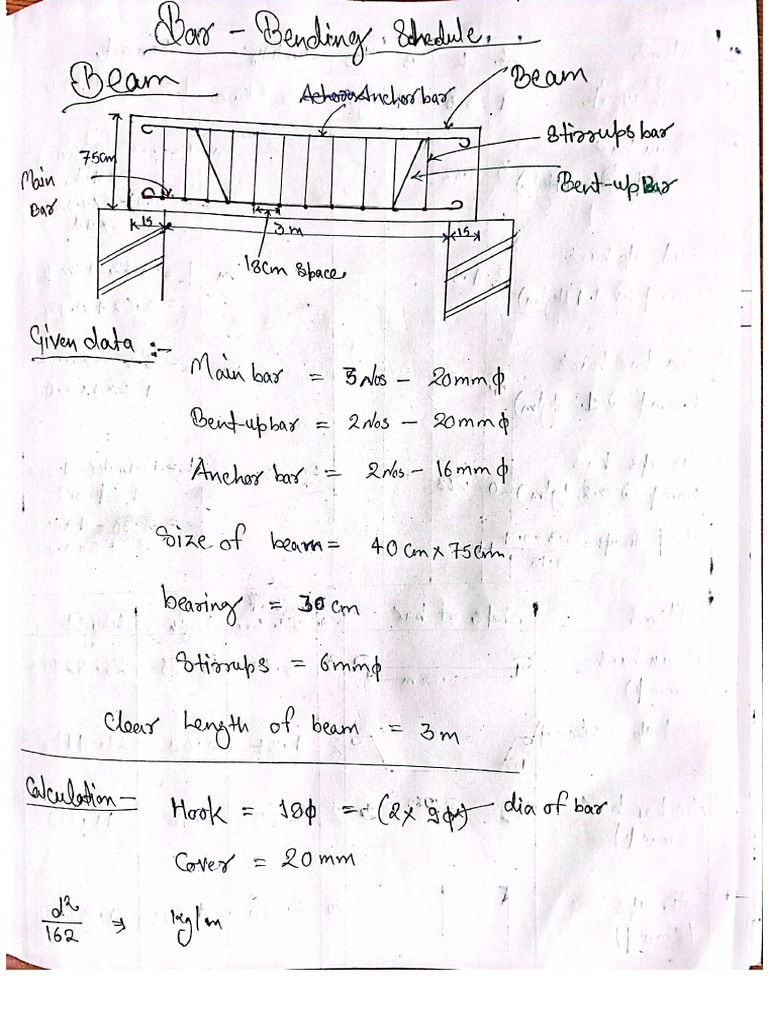 Bar - Bending Schedule.
Beam
Anchor bar
Beam
Stirrups bar
75cm
Main
Bar
Bent-up Bar
15
3m
15
18cm space
Given data :-
Main bar = 3 Nos - 20mm ϕ
Bent-up bar = 2 Nos - 20mm ϕ
Anchor bar = 2 Nos - 16 mm ϕ
Size of beam = 40 cm x 75cm.
bearing = 30 cm
Stirrups = 6mm ϕ
Clear Length of beam = 3m
Calculation -
Hook = 18ϕ = (2 x 9ϕ) dia of bar
Cover = 20mm
d²/162 → kg/m